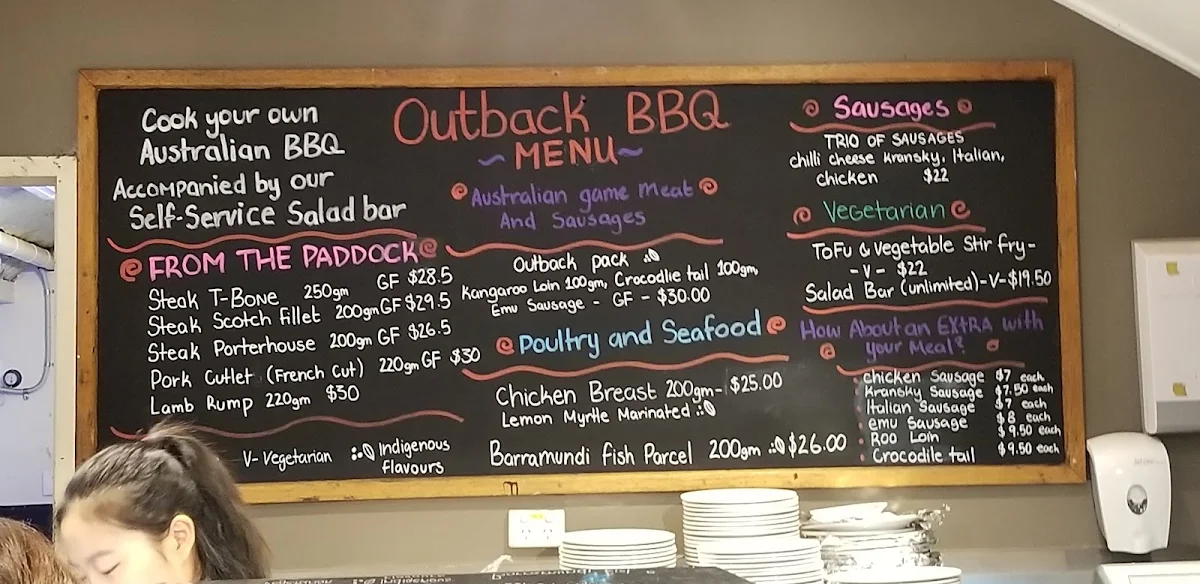 Cook your own
Australian BBQ
Accompanied by our
Self-Service Salad bar
FROM THE PADDOCK
Steak T-Bone 250gm GF $28.5
Steak Scotch Fillet 200gm GF $29.5
Steak Porterhouse 200gm GF $26.5
Pork Cutlet (French Cut) 220gm GF $30
Lamb Rump 220gm $30
V- Vegetarian Indigenous
flavours
Outback BBQ
~ MENU ~
Australian game Meat
And Sausages
Outback pack
Kangaroo Loin 100gm, Crocodlie tail 100gm,
Emu Sausage - GF - $30.00
Poultry and Seafood
Chicken Breast 200gm- $25.00
Lemon Myrtle Marinated
Barramundi fish Parcel 200gm $26.00
Sausages
TRIO OF SAUSAGES
chilli cheese Kransky, Italian,
chicken $22
Vegetarian
ToFu & Vegetable Stir fry-
- V - $22
Salad Bar (unlimited)-V-$19.50
How About an EXtRA with
your Meal?
chicken Sausage $7 each
Kransky Sausage $7.50 each
Italian Sausage $7 each
emu Sausage $8 each
Roo Loin $9.50 each
Crocodile tail $9.50 each